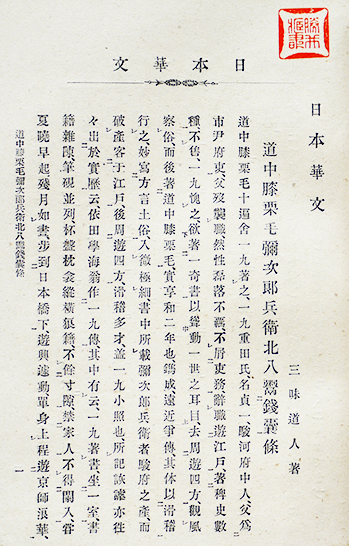 日本華文
日本華文
道中膝栗毛彌次郎兵衛北八鬻錢囊條
三味道人著
道中膝栗毛十返舍一九著之、一九重田氏、名貞一、駿河府中人、父爲
市尹府吏、父歿襲職、然性磊落不羈、不屑吏務、辭職遊江戶、著稗史數
種不售、一九愧之、欲著一奇書、以聳動一世之耳目、去周遊四方、觀風
察俗、而後著道中膝栗毛、實享和二年也、鐫成、遠近爭傳、其体以滑稽
行之、妙寫方言土俗、入微極細、書中所載彌次郎兵衛者、駿府之產、而
破產客于江戶、後周遊四方、滑稽多才、蓋一九小照也、所記詼謔亦往
々出於實歷云、依田學海翁作一九傳、其中有云、一九著書坐一室、書
籍雜陳、筆硯並列、杯盤枕衾縱橫狼籍、不餘寸隙、禁家人不得闖入、甞
夏曉早起、殘月如晝、步到日本橋下、遊興遽動、單身上程、遊京師浪華、
道中膝栗毛彌次郎兵衛北八鬻錢囊條
一